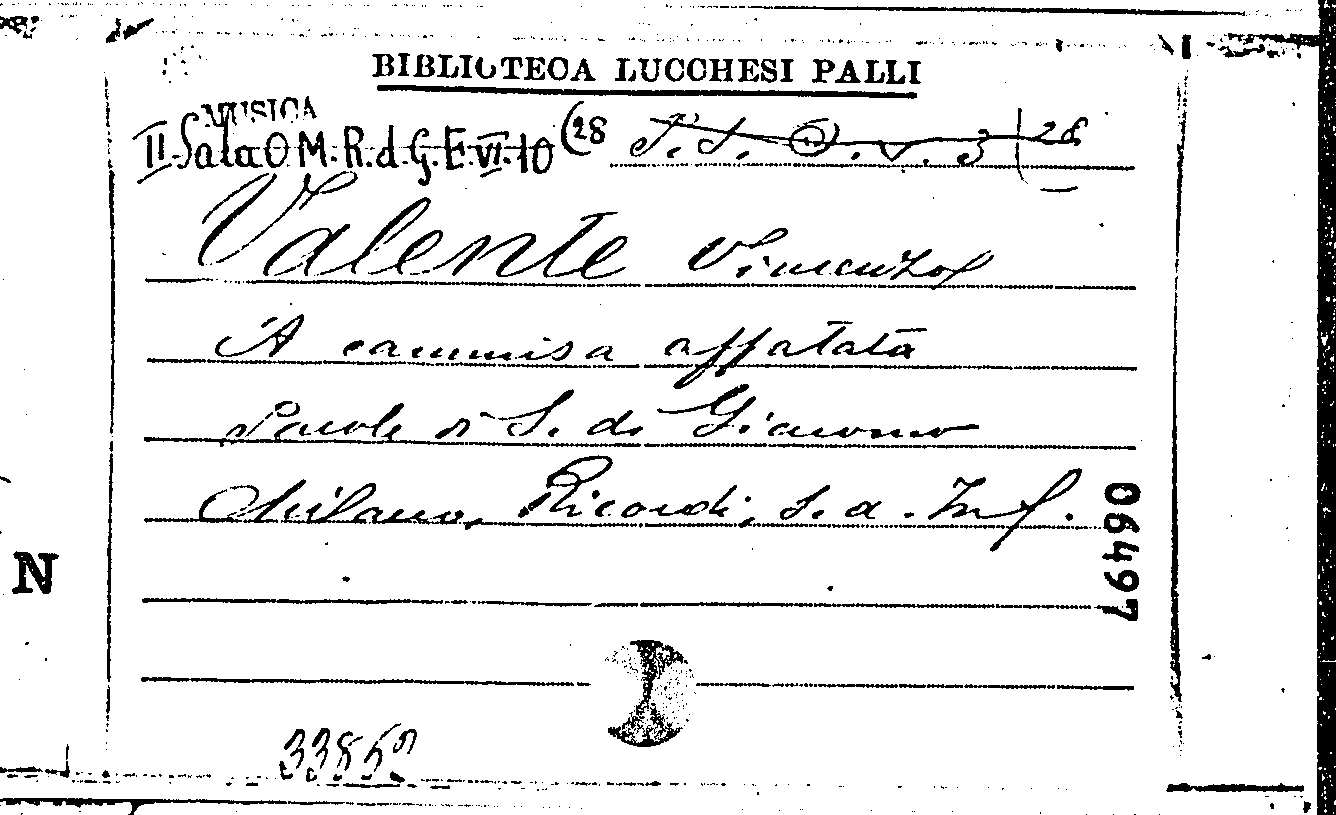 BIBLIOTECA LUCCHESI PALLI
MUSICA
II Sala O M.R.d.G.E.VI.10 (28
Valente Vincenzo
'A cammisa affatata
Parole di S. di Giacomo
Milano, Ricordi, s. a. In f.
06497
N